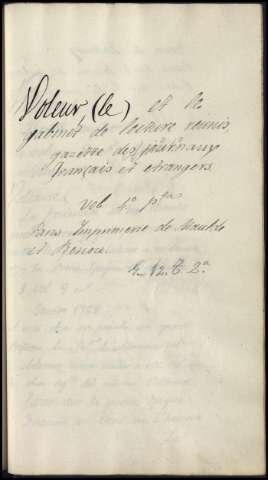 Voleur, (le) et le
cabinet de lecture reunis,
gazette des journaux
français et etrangers.
vol 4º pta
Paris Imprimerie de Maulde
et Renou.
E. 12. T. 2ª